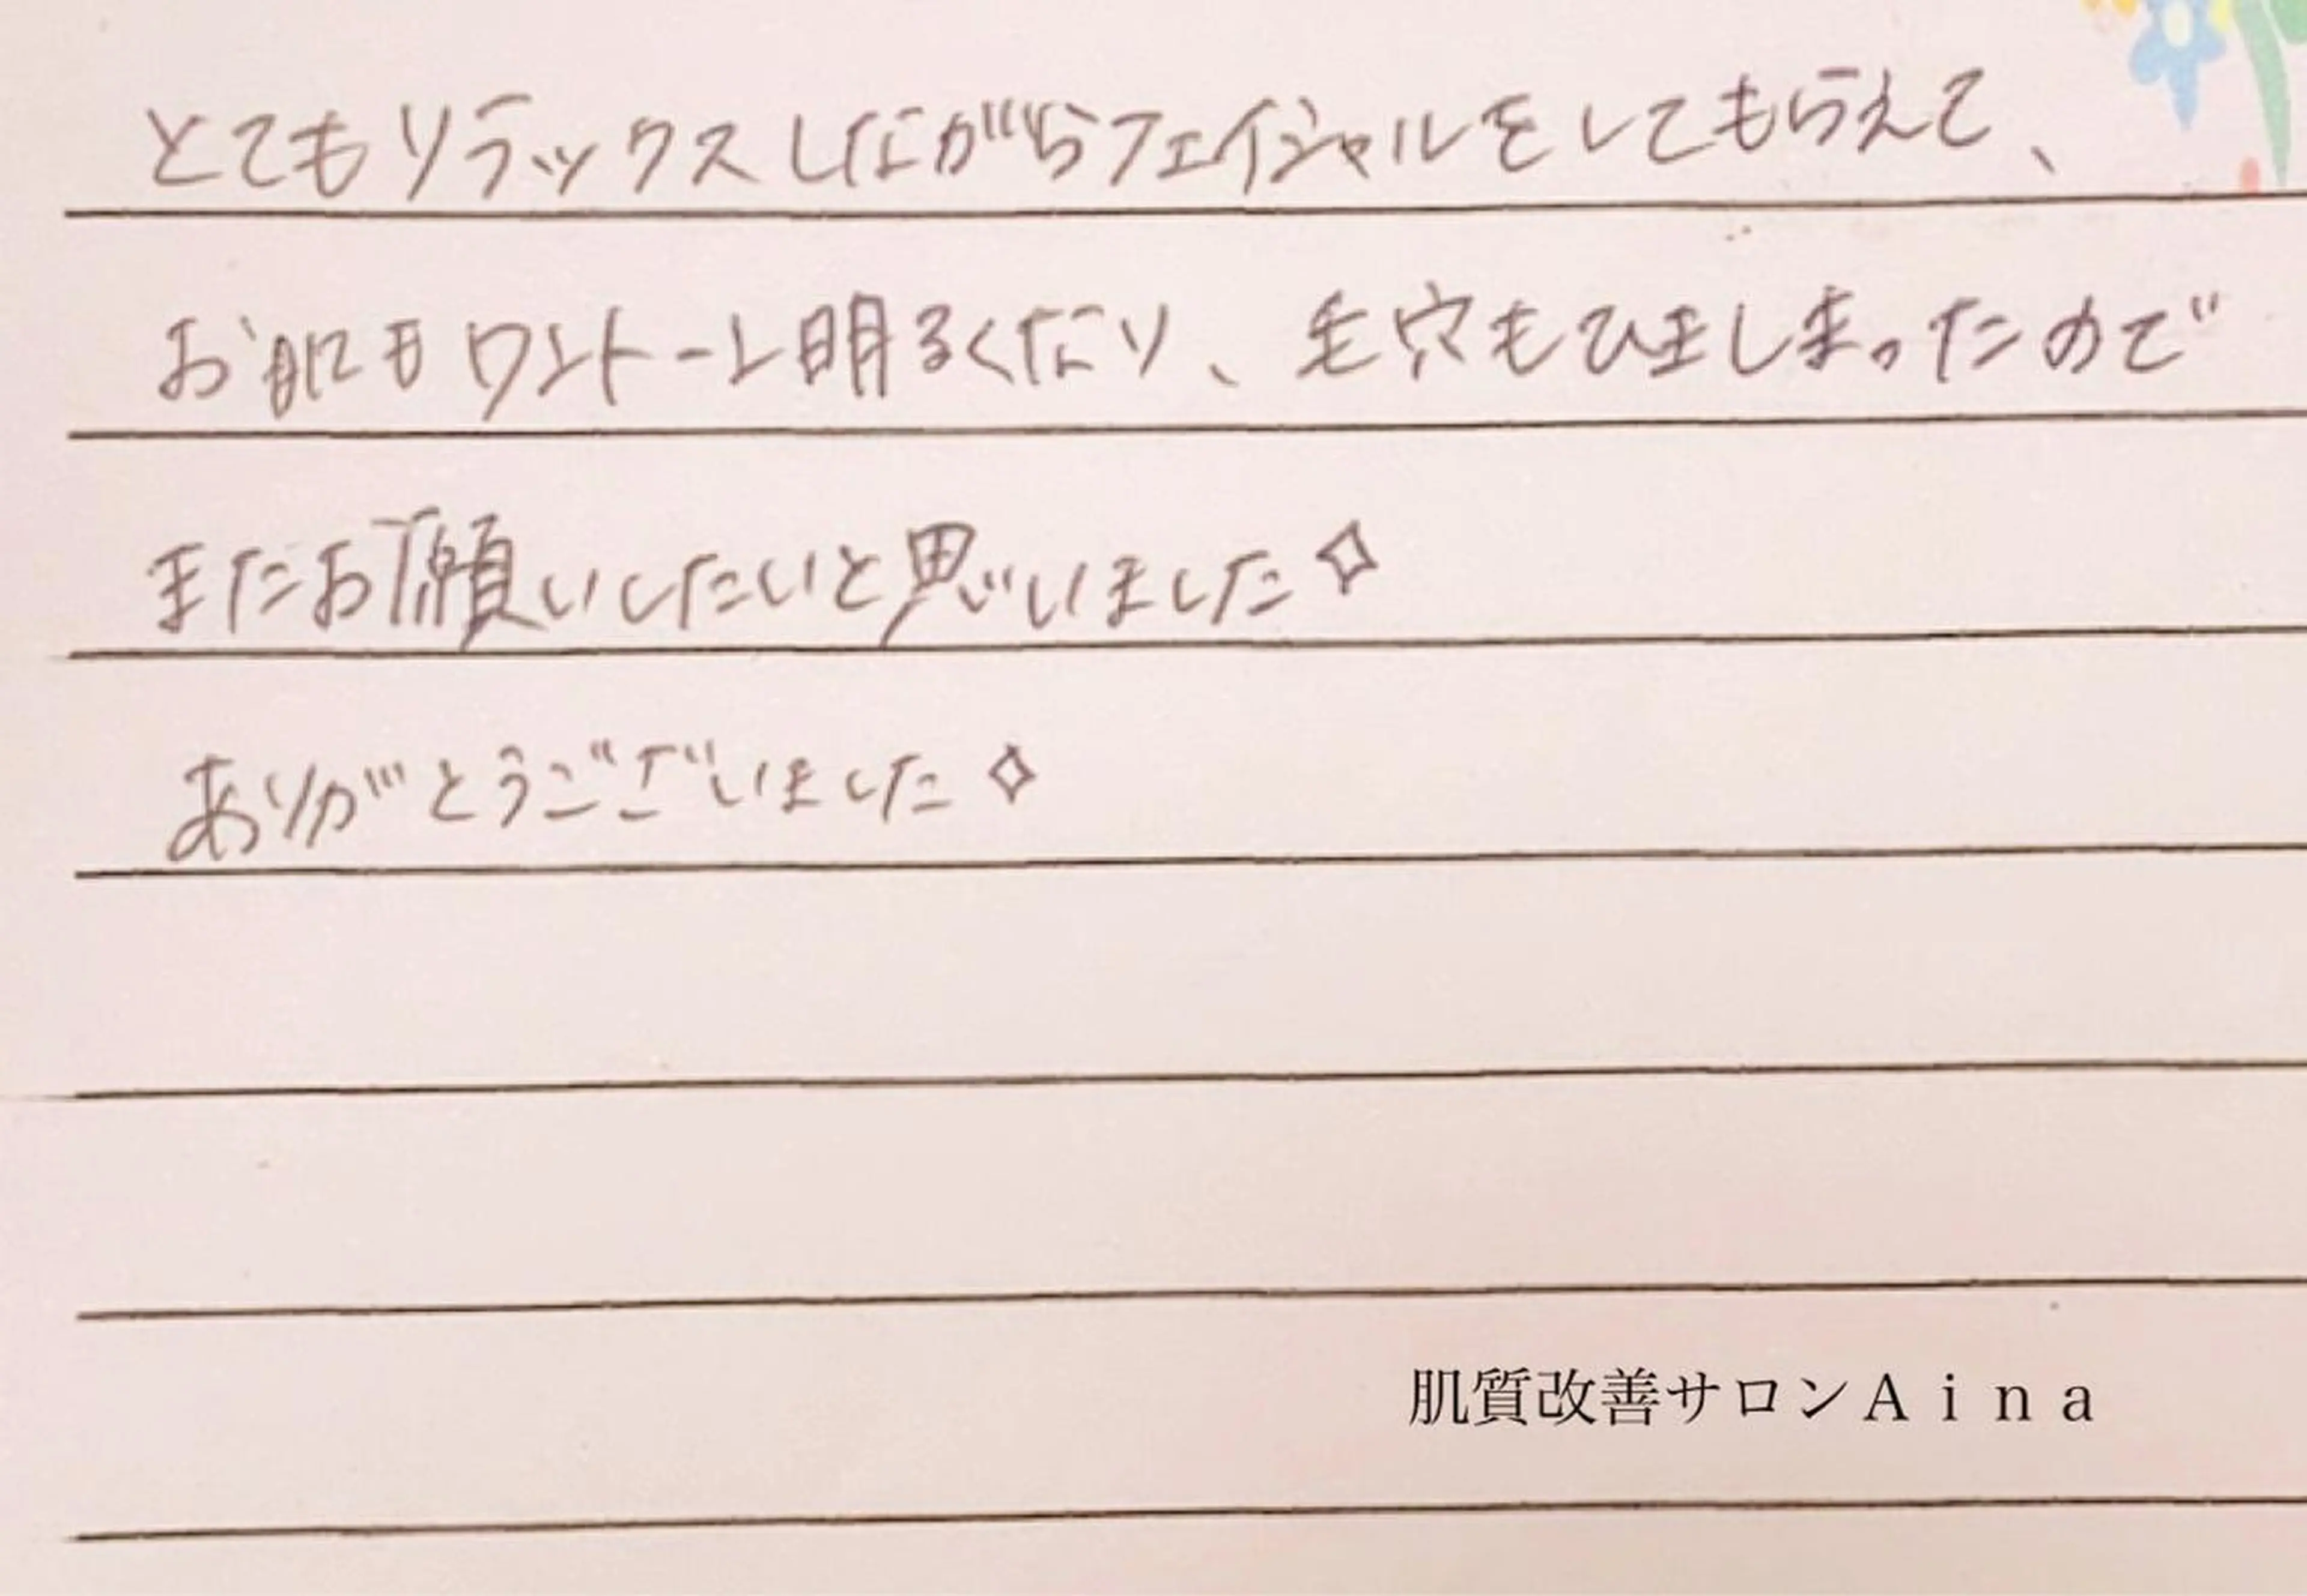 とてもリラックスしながらフェイシャルをしてもらえて、
お肌もワントーン明るくなり、毛穴もひきしまったので
またお願いしたいと思いました✧
ありがとうございました✧
肌質改善サロンAina